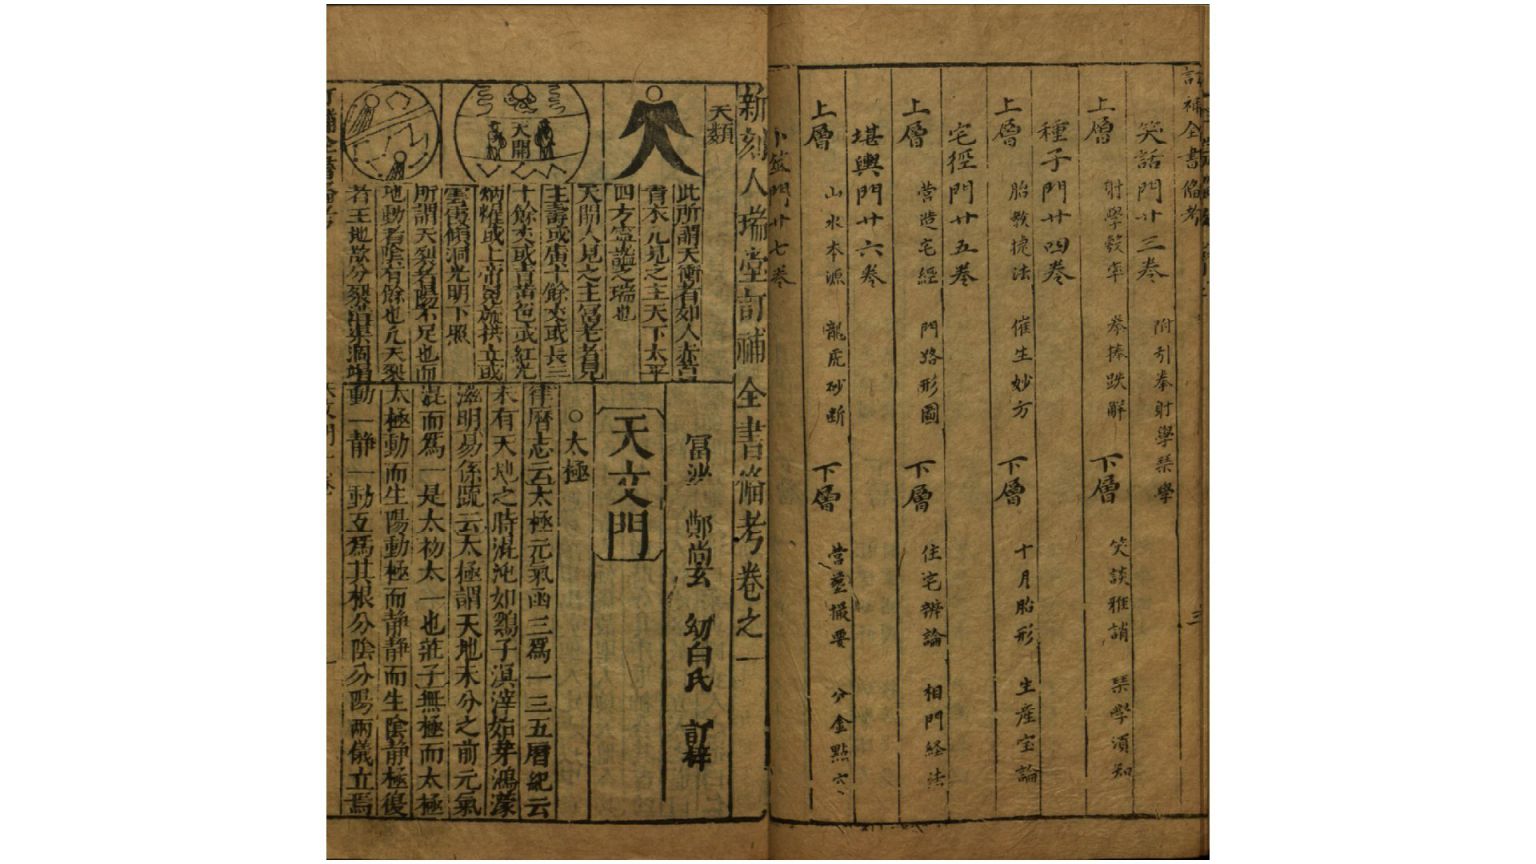 訂補全書備考
附引拳射學琹學
笑話門廿三卷
上層 射學彀率 拳捧跌解 下層 笑談雅誚 琹學湏知
種子門廿四卷
上層 胎教捷法 催生妙方 下層 十月胎形 生產宝論
宅徑門廿五卷
上層 营造宅經 門路形圖 下層 住宅辨論 相門経法
堪輿門廿六卷
上層 山水本源 龍虎砂断 下層 营塟撮要 分金點穴
卜筮門廿七卷
三
新刻人瑞堂訂補全書俻考卷之一
天類
天開
此所謂天衝者如人赤首
青衣凡見之主天下太平
四方寧謐之瑞也
天開人見之主冨老者見
主壽或廣十餘丈或長三
十餘丈或青黄色或紅光
炳耀或上帝冕旒拱立或
雲霞傾洞光明下照
所謂天裂者陽不足也而
地動者陰有餘也凡天裂
者王地
冨沙 鄭尚玄 幼白氏 訂梓
天文門
○太極
律曆志云太極元氣函三爲一三五曆紀云
未有天地之時混沌如鷄子溟滓始芽鴻濛
滋明易係疏云太極謂天地未分之前元氣
混而爲一是太初太一也莊子無極而太極
太極動而生陽動極而静静而生陰静極復
動一静一動互爲其根分陰分陽兩儀立焉